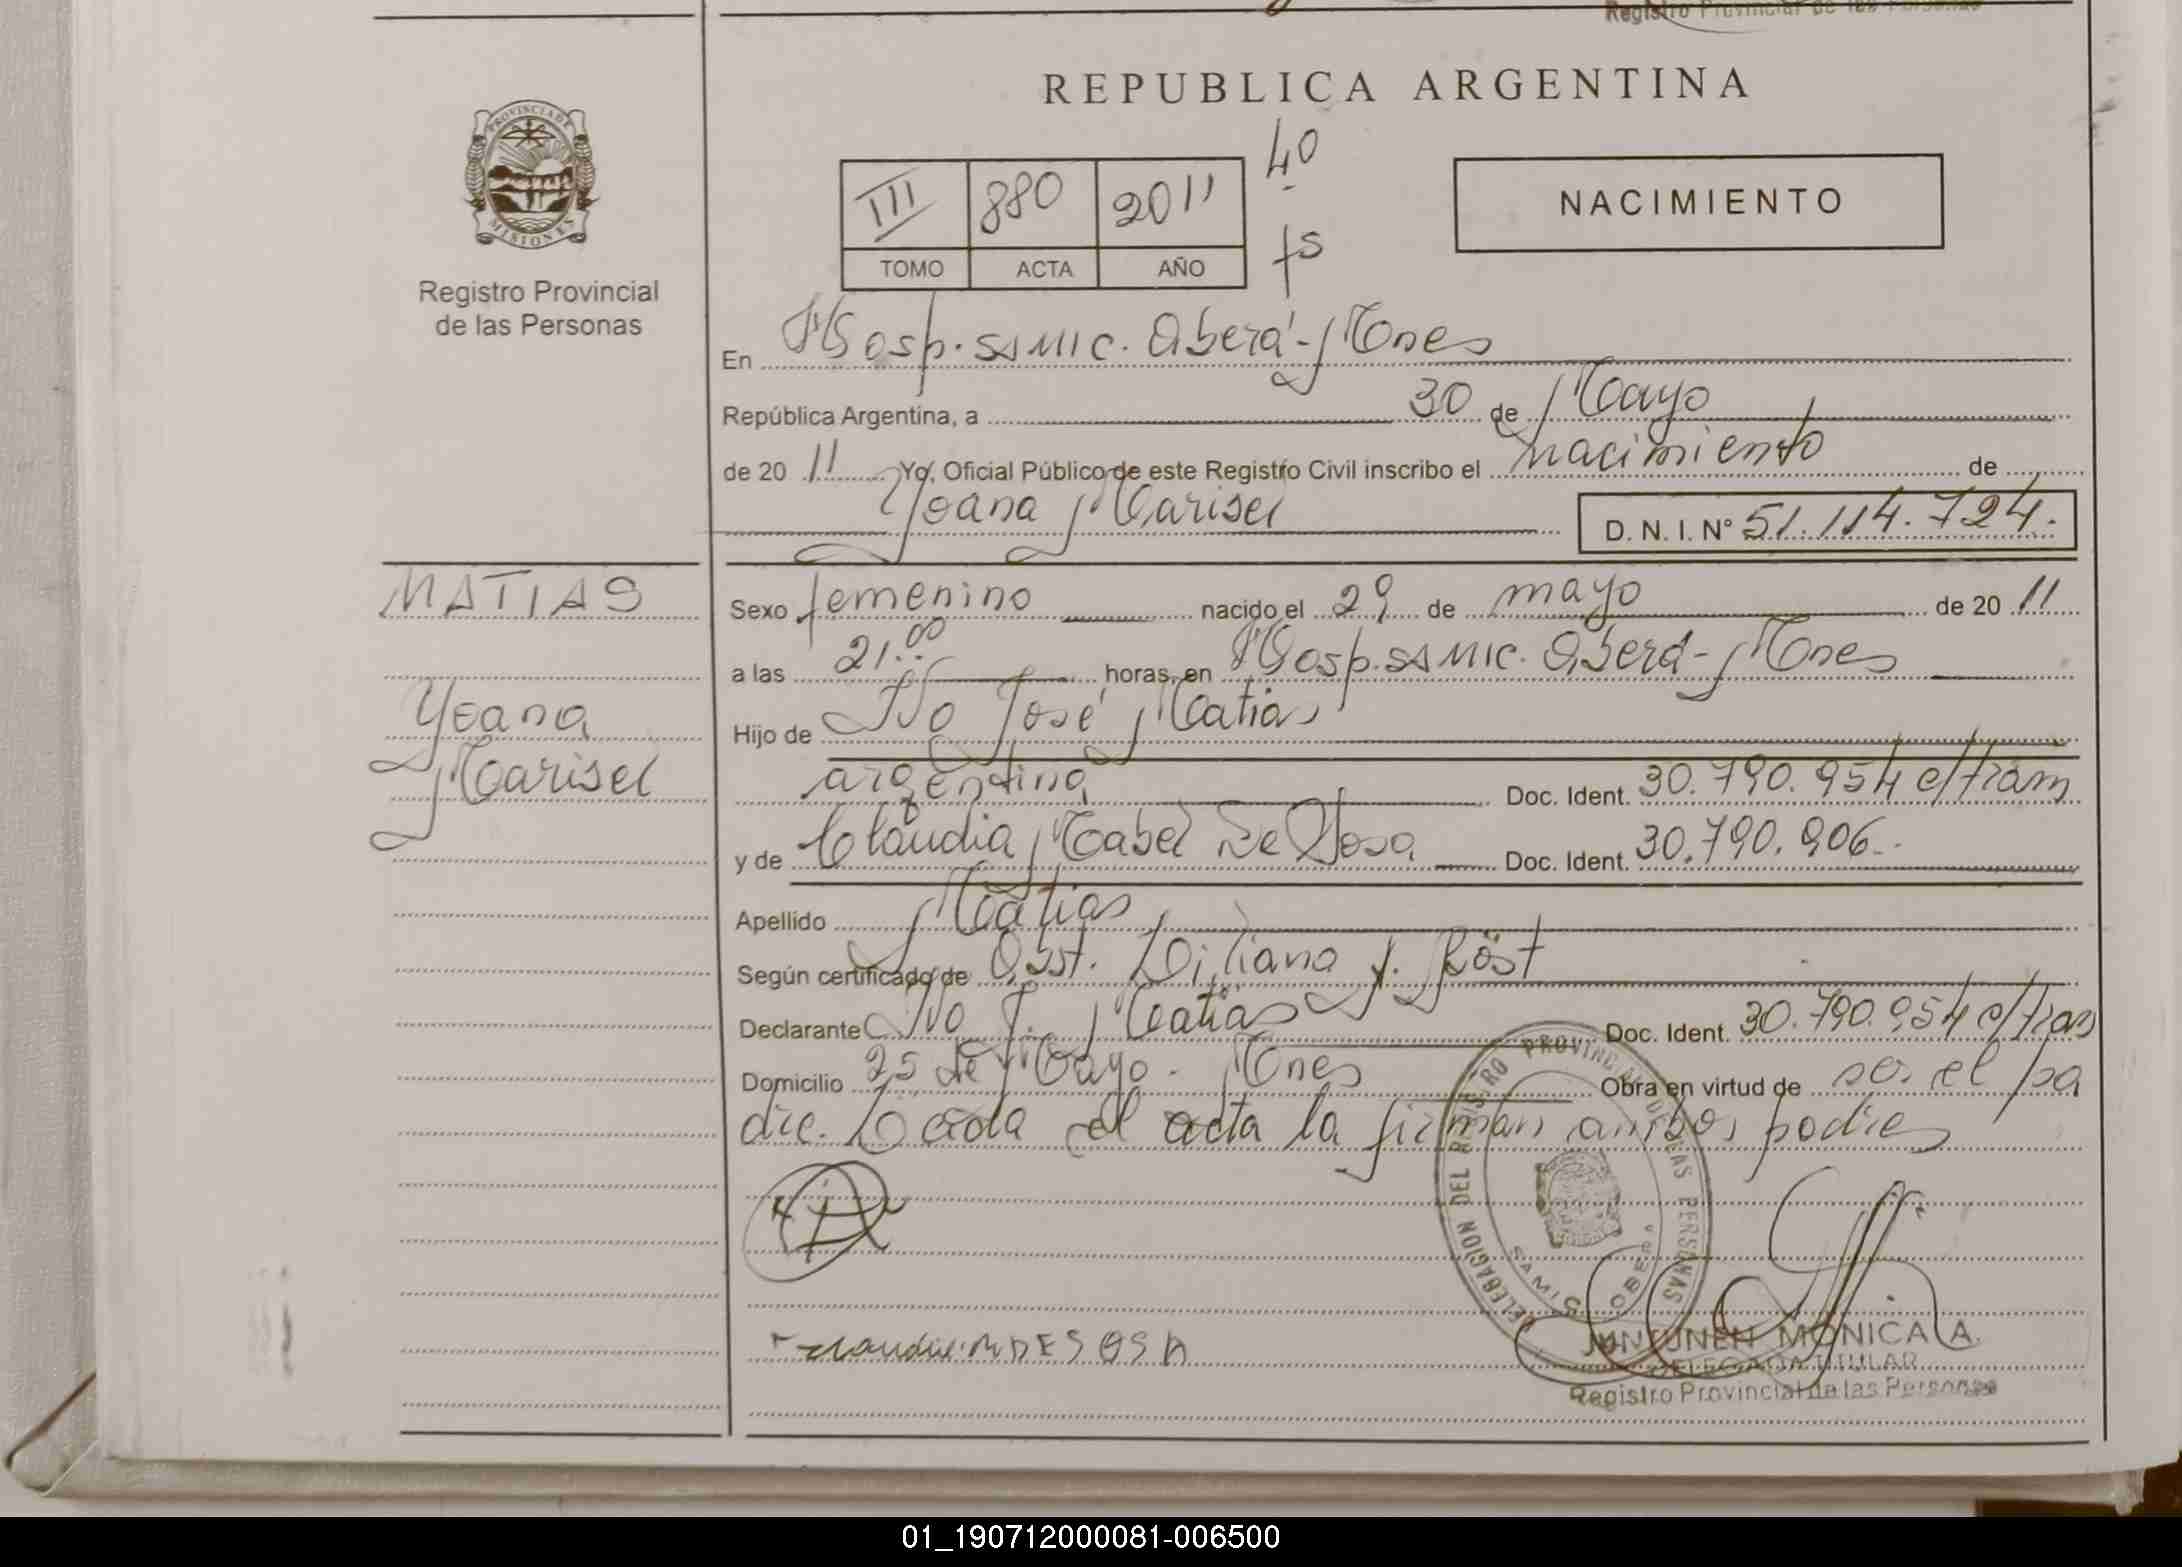 Registro Provincial de las Personas
REPUBLICA ARGENTINA
PROVINCIA DE MISIONES
Registro Provincial
de las Personas
III 880 2011
TOMO ACTA AÑO
40
fs
NACIMIENTO
En Hosp. SAMIC. Oberá - Mnes
República Argentina, a 30 de Mayo
de 2011 Yo, Oficial Público de este Registro Civil inscribo el nacimiento de
Yoana Marisel D. N. I. N° 51.114.724.
MATIAS
Yoana
Marisel
Sexo femenino nacido el 29 de mayo de 2011
a las 21.00 horas, en Hosp. SAMIC. Oberá - Mnes
Hijo de Ivo José Matias
argentina Doc. Ident. 30.790.954 c/tram
y de Claudia Mabel De Sosa Doc. Ident. 30.790.906.
Apellido Matias
Según certificado de Obst. Liliana Y. Röst
Declarante Ivo J. Matias Doc. Ident. 30.790.954 c/tram
Domicilio 25 de Mayo - Mnes Obra en virtud de ser el pa
dre. Leida el acta la firman ambos padres
DELEGACION DEL REGISTRO PROVINCIAL DE LAS PERSONAS
SAMIC OBERA
DE SOSA
JUNTUNEN MONICA A.
DELEGADA TITULAR
Registro Provincial de las Personas
01_190712000081-006500